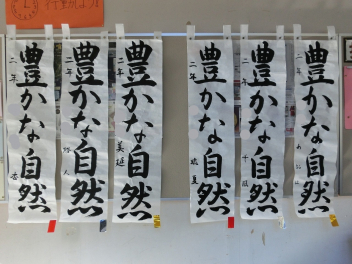 行動しよう
豊かな自然
二年
杏
豊かな自然
二年
豊かな自然
二年
美延
豊かな自然
二年
豊かな自然
二年
豊かな自然
二年